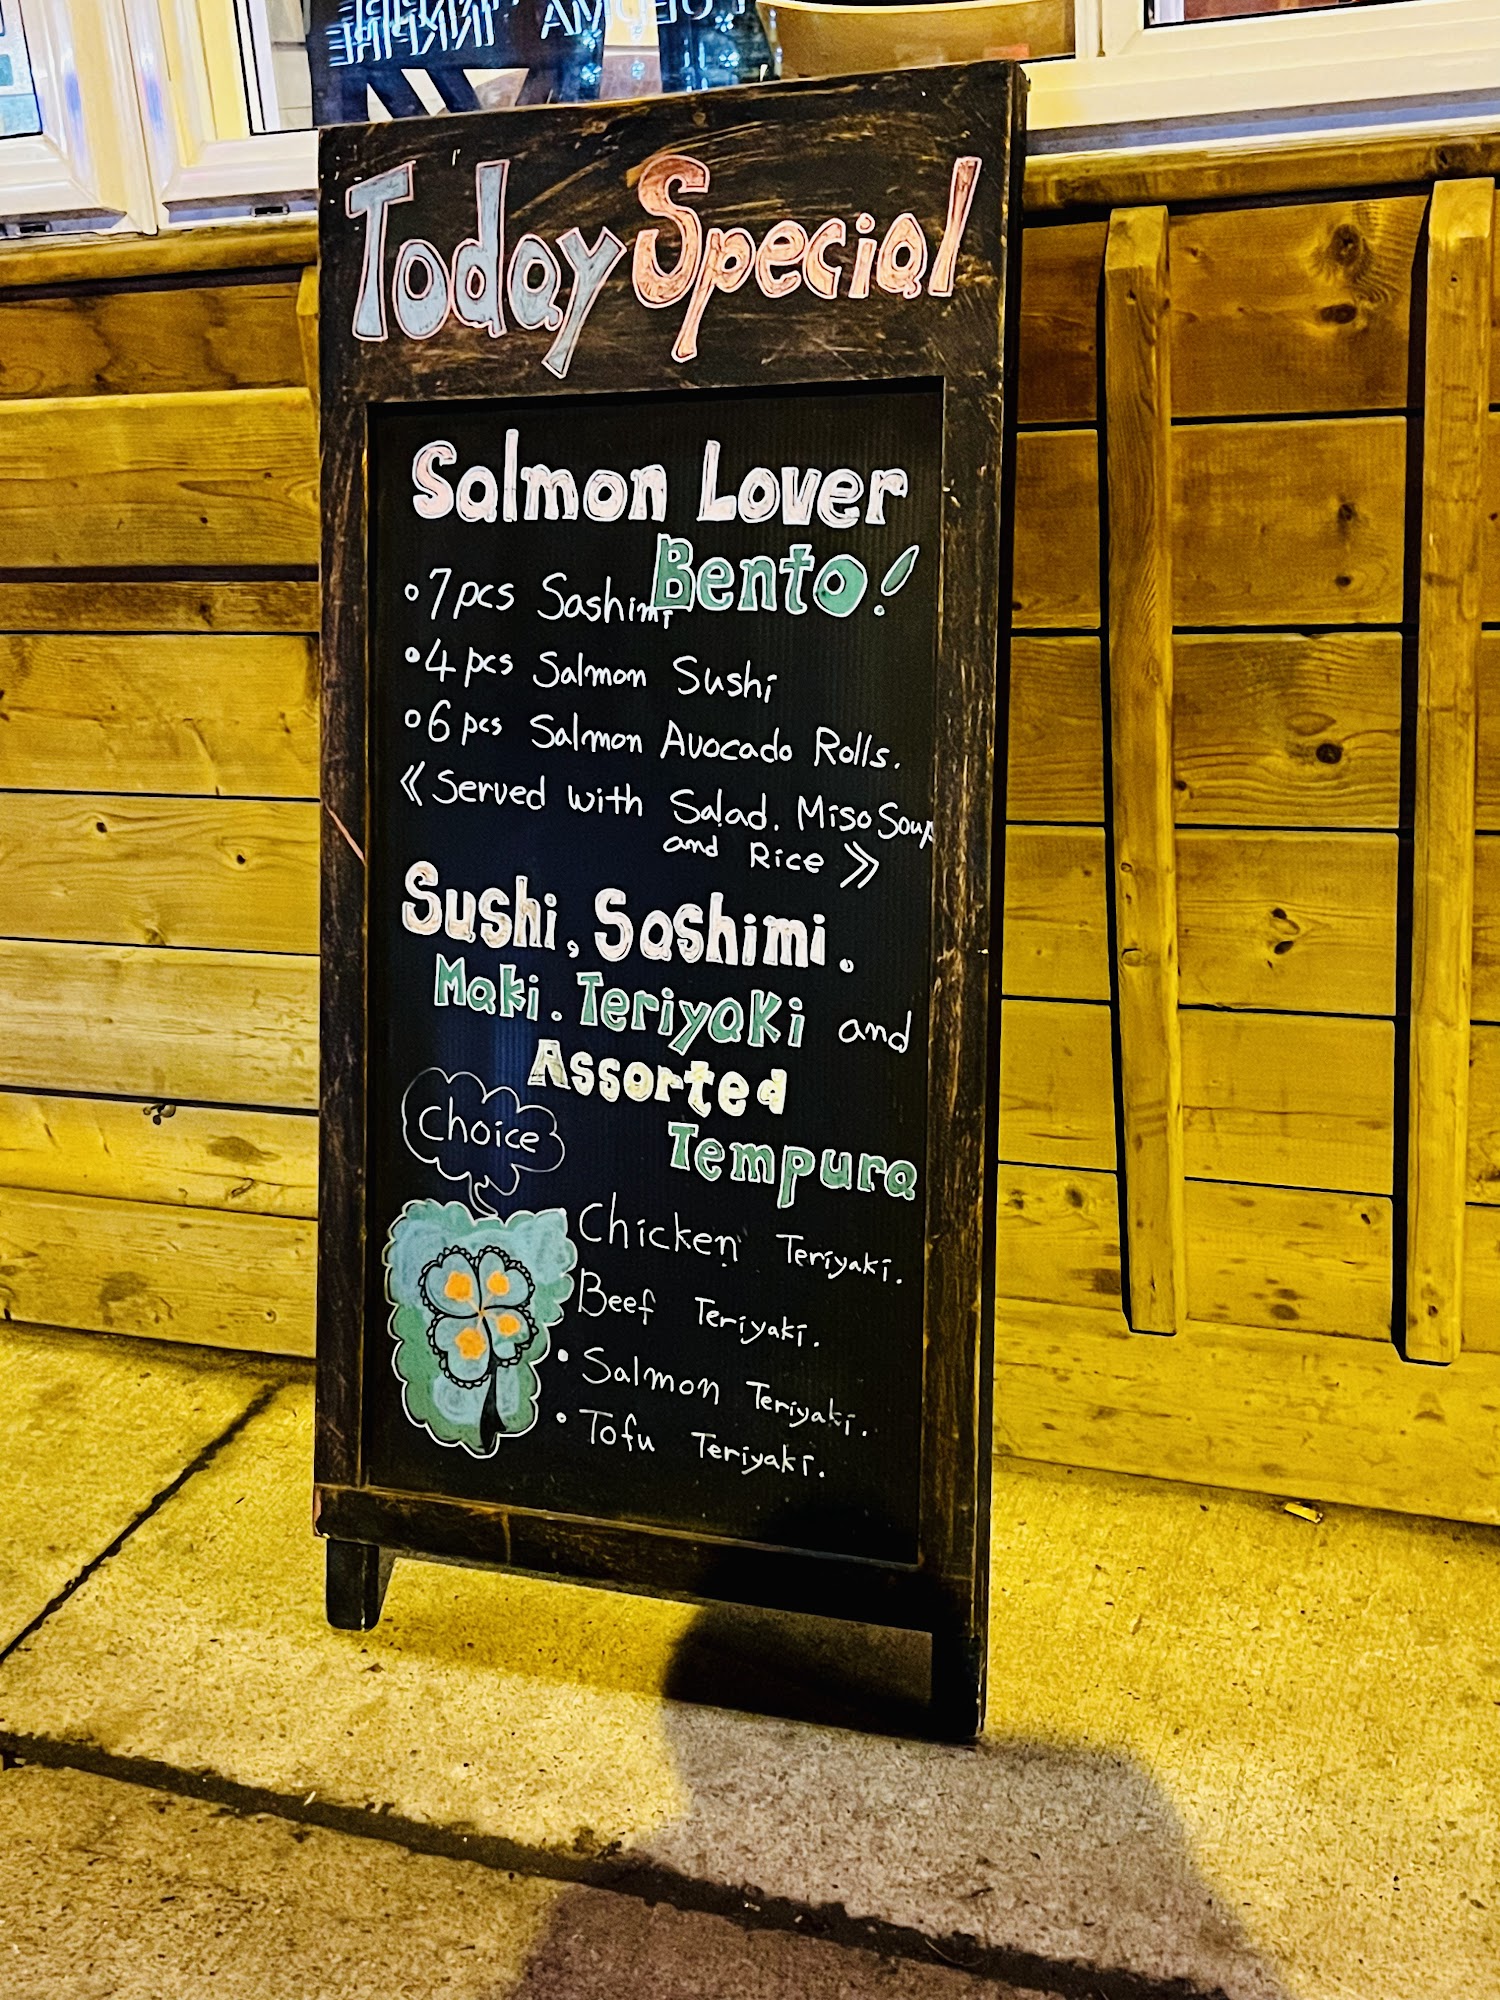 Today Special
Salmon Lover
Bento!
7pcs Sashimi
4 pcs Salmon Sushi
6 pcs Salmon Avocado Rolls.
《Served with Salad. Miso Soup
and Rice》
Sushi, Sashimi.
Maki. Teriyaki and
Assorted
Tempura
Choice
Chicken Teriyaki.
Beef Teriyaki.
• Salmon Teriyaki.
• Tofu Teriyaki.